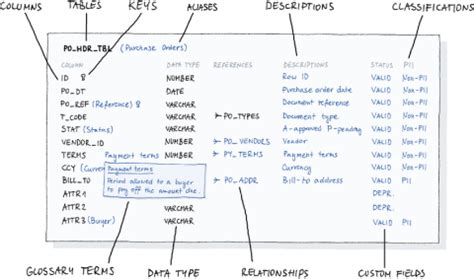 COLUMNS TABLES KEYS ALIASES DESCRIPTIONS CLASSIFICATIONS
PO_HDR_TBL (Purchase Orders)
COLUMN DATA TYPE REFERENCES DESCRIPTIONS STATUS PII
ID NUMBER Row ID VALID Non-PII
PO_DT DATE Purchase order date VALID Non-PII
PO_REF (Reference) VARCHAR Document reference VALID Non-PII
T_CODE VARCHAR PO_TYPES Document type VALID Non-PII
STAT (Status) VARCHAR A-approved P-pending VALID Non-PII
VENDOR_ID NUMBER PO_VENDORS Vendor VALID Non-PII
TERMS Payment terms NUMBER PY_TERMS Payment terms VALID Non-PII
CCY (Curren Payment terms Currency VALID Non-PII
BILL_TO Period allowed to a buyer PO_ADDR Bill-to address VALID PII
to pay off the amount due.
ATTR1 DEPR.
ATTR2 VARCHAR DEPR.
ATTR3 (Buyer) VARCHAR VALID PII
GLOSSARY TERMS DATA TYPE RELATIONSHIPS CUSTOM FIELDS